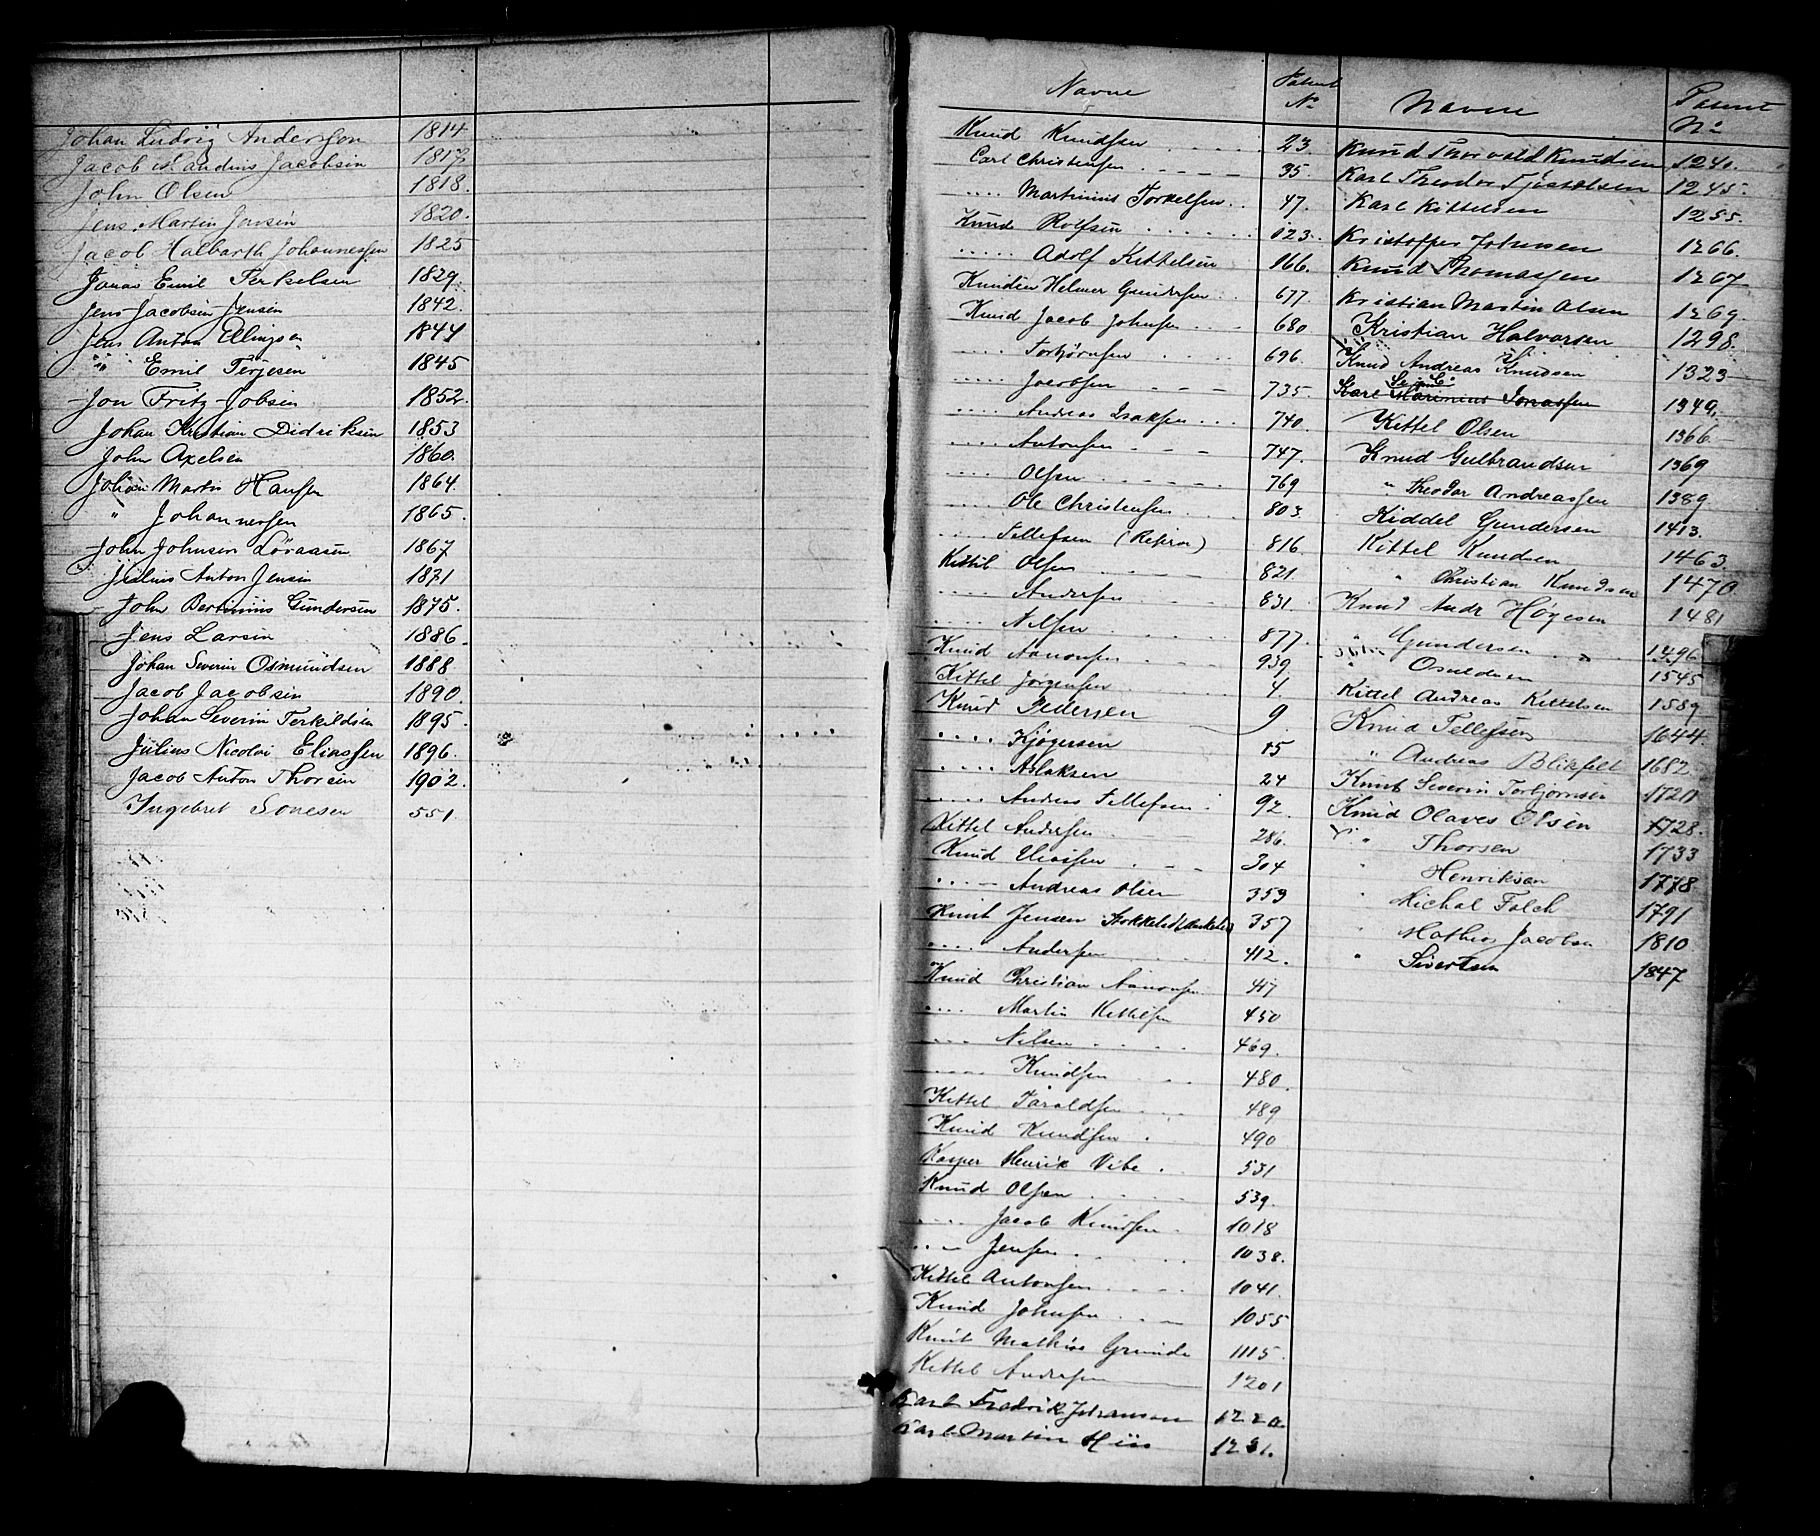 Johan Ludvig Anderssen 1814
Jacob Mandius Jacobsin 1817
John Olsen 1818.
Jens Martin Jensin 1820.
Jacob Halbarth Johannessen 1825
Jonas Emil Terkelsen 1829
Jens Jacobsin Jensin 1842.
Jens Anton Elingsen 1844
" " Emil Terjesen 1845
Jon Fritz Jobsin 1852.
Johan Kristian Didriksin 1853
John Axelsen 1860.
Johan Martin Hansen 1864.
" Johannessen 1865.
John Johnsen Löraasen 1867
Julius Anton Jensin 1871
John Bertinius Gundersen 1875.
Jens Larsin 1886.
Johan Severin Osmundsen 1888
Jacob Jacobsin 1890.
Johan Severin Terkildsen 1895.
Julius Nicolai Eliassen 1896.
Jacob Anton Thorsen 1902.
Ingebret Sonesen 551
Navne Patent No
Knud Knudsen 23
Carl Christensen 35
.... Martinius Torkelsen 47.
Knud Rolfsen 123.
..... Adolf Kittelsen 166.
Knudin Helmer Gundersen 677
Knud Jacob Johnsen 680
.... Torbjörnsen 696.
.... Jacobsen 735.
.... Andreas Isaksen 740.
.... Antonsen 747.
.... Olsen 769
.... Ole Christensen 803.
.... Tellefsen (Refsnæ) 816.
Kittil Olsen 821.
.... Andersen 831.
.... Nilsen 877.
Knud Aanonsen 939.
Kittel Jörgensen 4
Knud Pedersen 9
.... Kjögersen 15
.... Aslaksen 24
.... Anders Tellefsen 92.
Kittel Andersen 286.
Knud Eliassen 304
.... Andreas Olsen 353
Knut Jensen Stokkelid 357
.... Andersen 412.
Knud Christian Aanonsen 417
.... Martin Kittilsen 450
.... Nilsen 469.
.... Knudsen 480.
Kittel Taraldsen 489
Knud Knudsen 490
Kasper Henrik Vibe 531
Knud Olsen 539.
.... Jacob Knudsen 1018
.... Jensen 1038.
Kittil Antonsen 1041.
Knud Johnsen 1055
Knut Mathias Grunde 1115.
Kittel Andersen 1201
Karl Fredrik Johansen 1220
Karl Martin Hiis 1231.
Navne Patent No
Knud Thorvald Knudsen 1240.
Karl Theodor Tjöstolsen 1245.
Karl Kittelsen 1255.
Kristoffer Johnsen 1266.
Knud Thomassen 1267
Kristian Martin Olsen 1269.
Kristian Halvorsen 1298.
Knud Andreas Knudsen 1323
Karl Marinius Jonassen 1349.
Kittel Olsen 1366
Knud Gulbrandsen 1369
" Theodor Andreassen 1389
Kiddel Gundersen 1413.
Kittel Knudsen 1463.
" Christian Knudsen 1470
Knud Andr Högesen 1481
" Gundersen 1496
" Osuldsen 1545
Kittel Andreas Kittelsen 1589
Knud Tellefsen 1644.
" Andreas Blikfelt 1682
Knut Severin Torbjörnsen 1720
Knud Olaves Olsen 1728.
" Thorsen 1733
" Henriksen 1778
" Michal Falch 1791
" Mathias Jacobsen 1810
" Sivertsen 1847